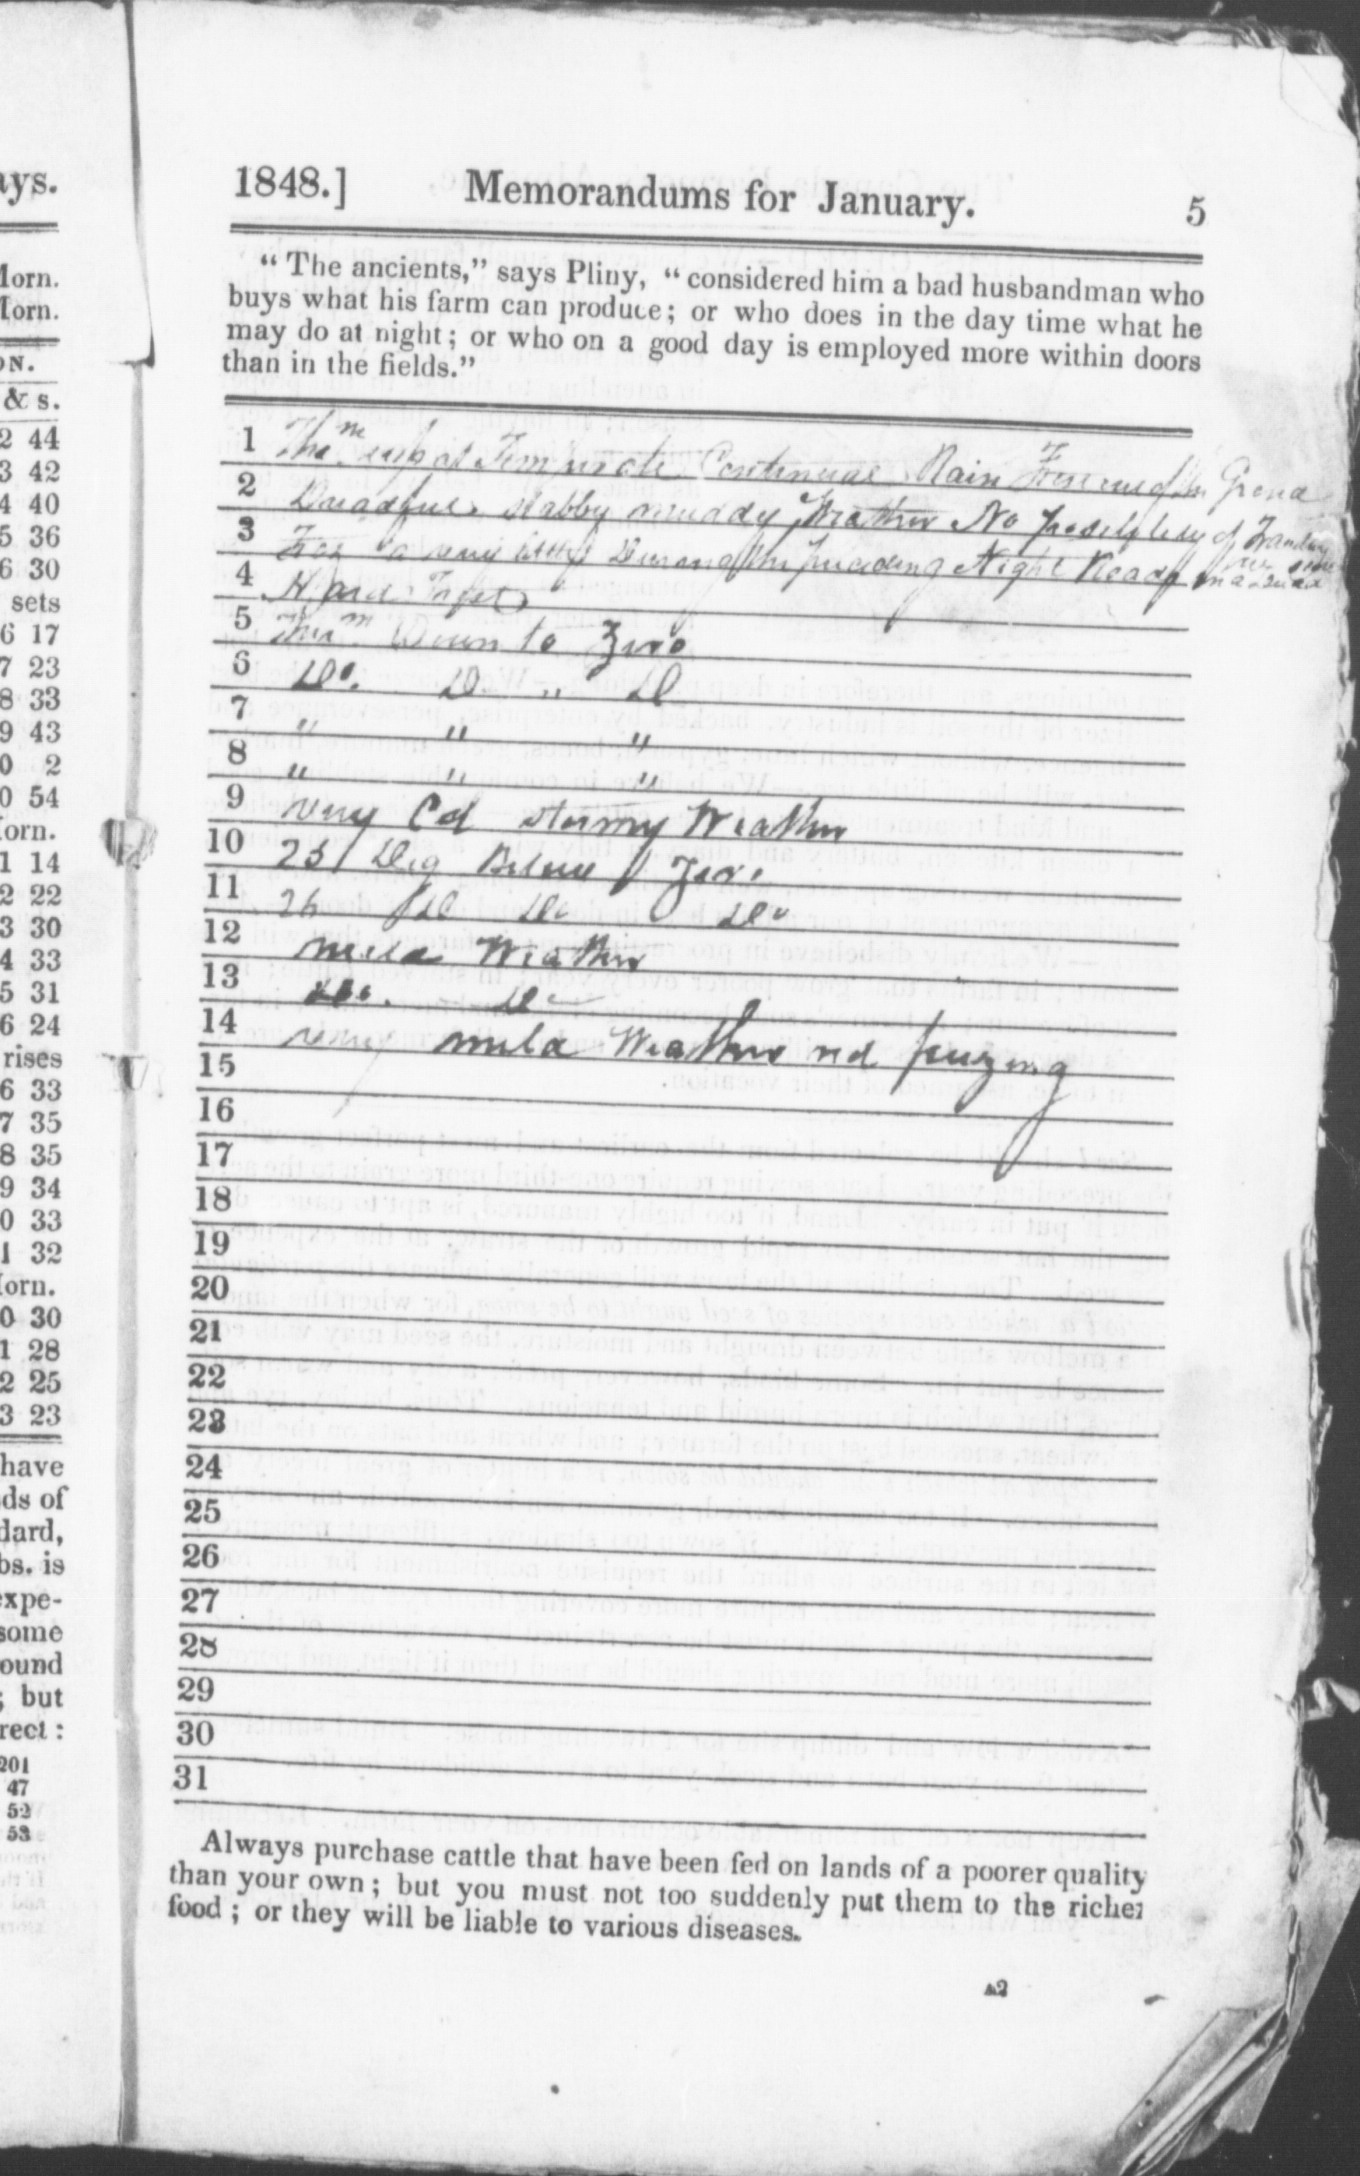 ays.
Morn.
Morn.
ON.
& s.
2 44
3 42
4 40
5 36
6 30
sets
6 17
7 23
8 33
9 43
0 2
0 54
Morn.
1 14
2 22
3 30
4 33
5 31
6 24
rises
6 33
7 35
8 35
9 34
0 33
1 32
Morn.
0 30
1 28
2 25
3 23
have
ds of
dard,
bs. is
expe-
some
ound
; but
rect :
201
47
52
53
1848.] Memorandums for January. 5
“ The ancients,” says Pliny, “ considered him a bad husbandman who
buys what his farm can produce; or who does in the day time what he
may do at night; or who on a good day is employed more within doors
than in the fields.”
1 Thm up at Temprate Continual Rain
2 Dreadful slabby muddy Weather No
3 a very little During the preceding Night Roads
4 Hard
5 Thm Down to Zero
6 Do. Do " D
7 " " "
8 " " "
9 very Cd stormy Weather
10 23 Deg Below Zero
11 Do Do
12 mild Weather
13 Do. D
14 very mild Weather freezing
15
16
17
18
19
20
21
22
23
24
25
26
27
28
29
30
31
Always purchase cattle that have been fed on lands of a poorer quality
than your own; but you must not too suddenly put them to the richer
food; or they will be liable to various diseases.
A2